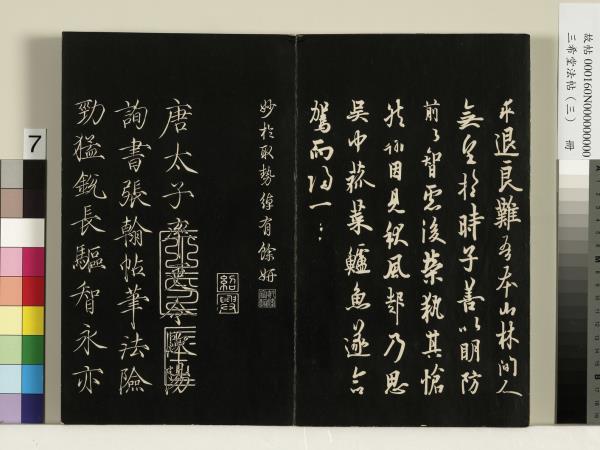 求退良難吾本山林間人
無望於時子善以明防
前以智慮後榮執其愴
然翰因見秋風起乃思
吳中菰菜鱸魚遂命
駕而歸一ミ
妙於取勢綽有餘妍
紹興
唐太子率更令歐陽
詢書張翰帖筆法險
勁猛銳長驅智永亦
故帖 000160N000000000
三希堂法帖(三) 冊
7